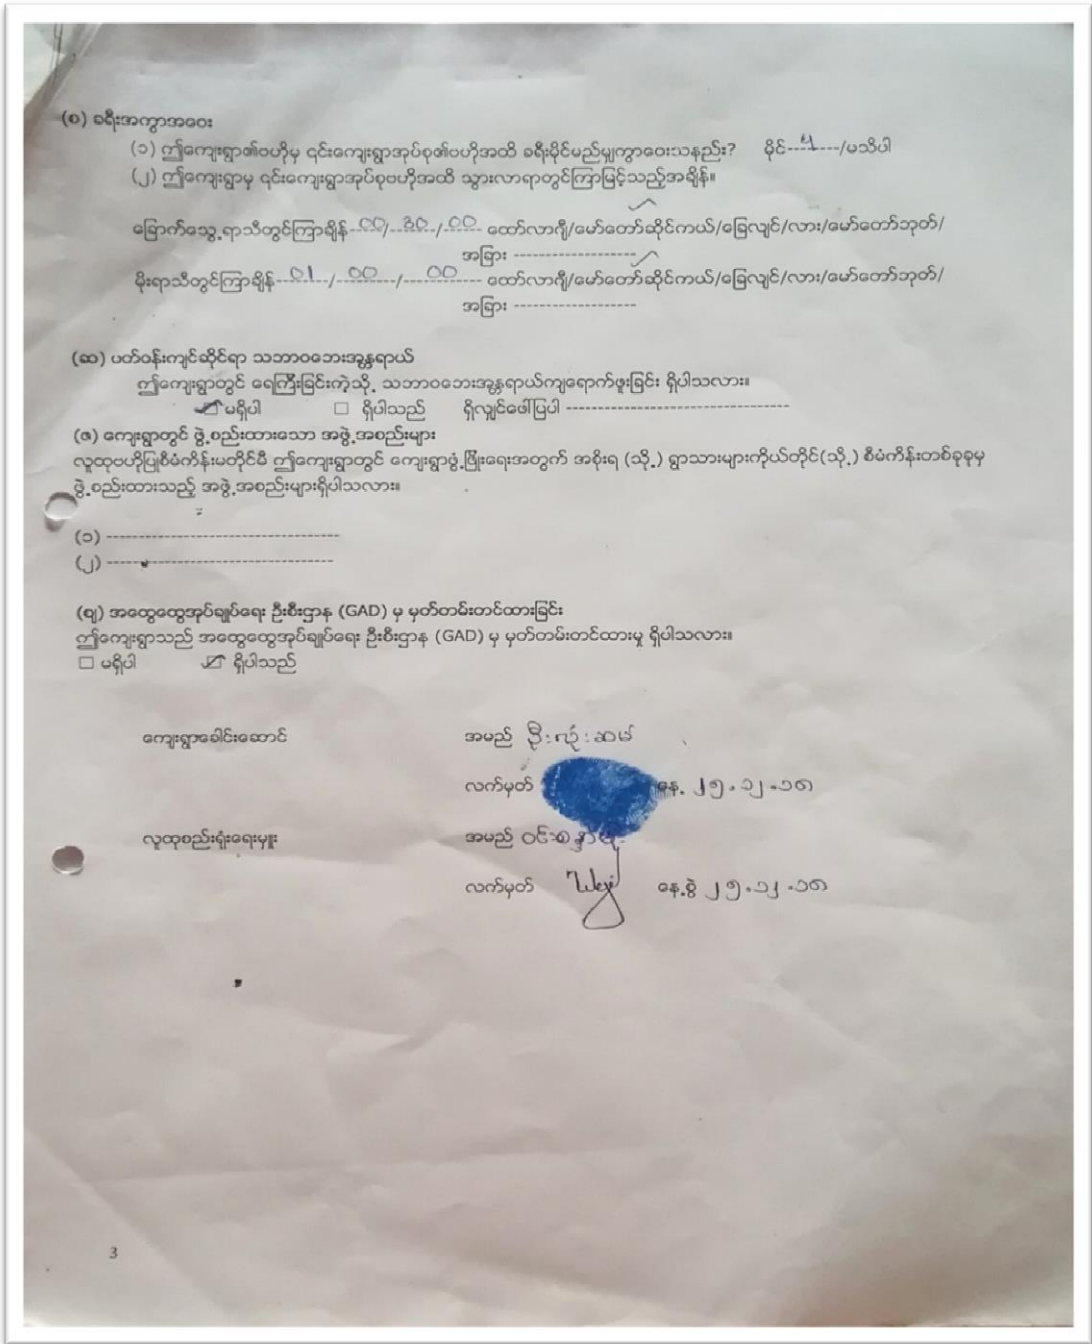 (စ) ခရီးအကွာအဝေး
(၁) ဤကျေးရွာ၏ဗဟိုမှ ၎င်းကျေးရွာအုပ်စု၏ဗဟိုအထိ ခရီးမိုင်မည်မျှကွာဝေးသနည်း? မိုင်---၅---/မသိပါ
(၂) ဤကျေးရွာမှ ၎င်းကျေးရွာအုပ်စုဗဟိုအထိ သွားလာရာတွင်ကြာမြင့်သည့်အချိန်။
ခြောက်သွေ့ရာသီတွင်ကြာချိန်--00/--30--/--00-- ထော်လာဂျီ/မော်တော်ဆိုင်ကယ်/ခြေလျင်/လား/မော်တော်ဘုတ်/
အခြား -------------------
မိုးရာသီတွင်ကြာချိန်--01--/--00--/--00-- ထော်လာဂျီ/မော်တော်ဆိုင်ကယ်/ခြေလျင်/လား/မော်တော်ဘုတ်/
အခြား -------------------
(ဆ) ပတ်ဝန်းကျင်ဆိုင်ရာ သဘာဝဘေးအန္တရာယ်
ဤကျေးရွာတွင် ရေကြီးခြင်းကဲ့သို့ သဘာဝဘေးအန္တရာယ်ကျရောက်ဖူးခြင်း ရှိပါသလား။
☑ မရှိပါ □ ရှိပါသည် ရှိလျှင်ဖေါ်ပြပါ -----------------------------------
(ဇ) ကျေးရွာတွင် ဖွဲ့စည်းထားသော အဖွဲ့အစည်းများ
လူထုဗဟိုပြုစီမံကိန်းမတိုင်မီ ဤကျေးရွာတွင် ကျေးရွာဖွံ့ဖြိုးရေးအတွက် အစိုးရ (သို့) ရွာသားများကိုယ်တိုင်(သို့) စီမံကိန်းတစ်ခုခုမှ
ဖွဲ့စည်းထားသည့် အဖွဲ့အစည်းများရှိပါသလား။
(၁) ------------------------------------
(၂) ------------------------------------
(ဈ) အထွေထွေအုပ်ချုပ်ရေး ဦးစီးဌာန (GAD) မှ မှတ်တမ်းတင်ထားခြင်း
ဤကျေးရွာသည် အထွေထွေအုပ်ချုပ်ရေး ဦးစီးဌာန (GAD) မှ မှတ်တမ်းတင်ထားမှု ရှိပါသလား။
□ မရှိပါ ☑ ရှိပါသည်
ကျေးရွာခေါင်းဆောင် အမည် ဦးလုံးဆမ်
လက်မှတ် နေ့ ၂၅.၁၂.၁၈
လူထုစည်းရုံးရေးမှူး အမည်
လက်မှတ် နေ့စွဲ ၂၅.၁၂.၁၈
3